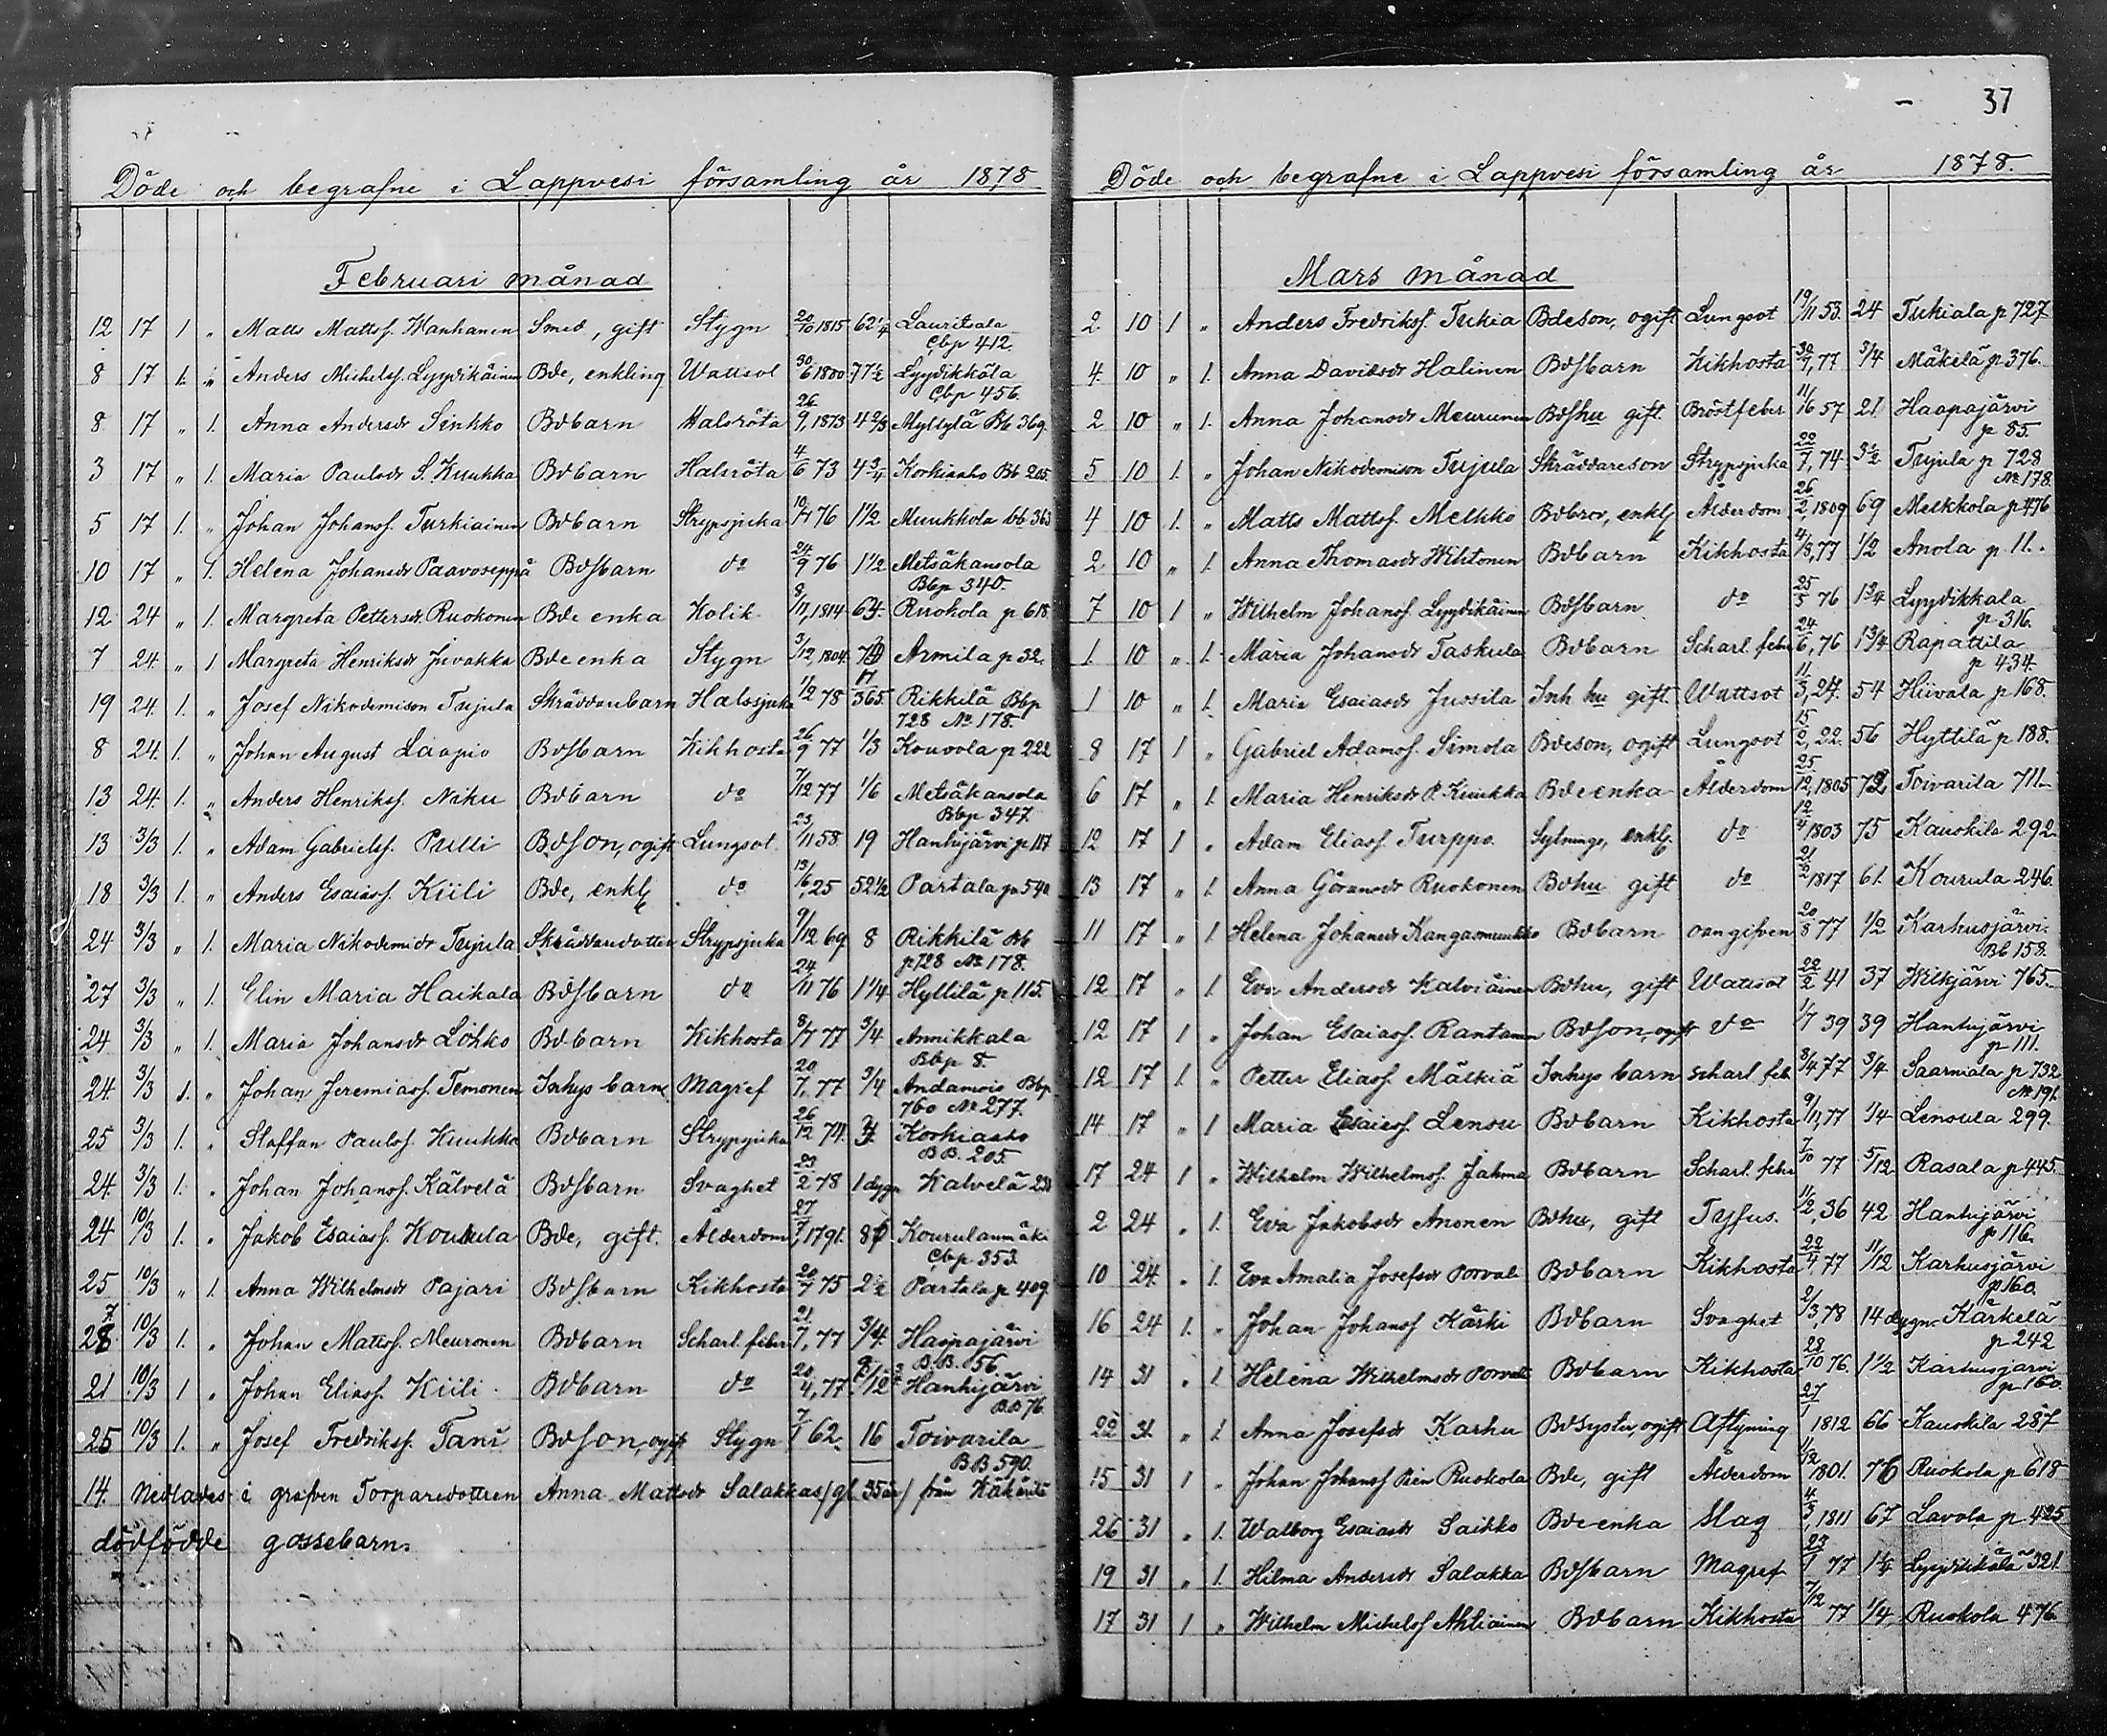 Döde och begrafne i Lappvesi församling år 1878
Februari månad
12 17 1 " Matts Mattsf. Hanhanen Smed, gift Stygn 20/10 1815 62 1/4 Lauritsala Cbp 412.
8 17 1. " Anders Michelsf. Lyydikäinen Bde, enkling Wattsot 30/6 1800 77 1/2 Lyydikkälä Cbp 456.
8 17 " 1. Anna Andersdr Sinkko Bdbarn Halsröta 26/9, 1873 4 2/3 Myllylä Bb 369.
3 17 " 1. Maria Paulsdr S. Kuukka Bdbarn Halsröta 4/6 73 4 3/4 Korkiaaho Bb 205.
5 17 1. " Johan Johansf. Turkiainen Bdbarn Strypsjuka 10/7 76 1 1/2 Muukkola bb 363
10 17 " 1. Helena Johansdr Paavoseppä Bdsbarn do 24/9 76 1 1/2 Metsäkansola Bbp 340.
12 24 " 1. Margreta Pettersdr. Ruokonen Bde enka Kolik 8/11, 1814 64. Ruokola p 618
7 24. " 1 Margreta Henriksdr Juvakka Bde enka Stygn 3/12, 1804. Armila p 32.
19 24. 1. " Josef Nikodemison Tujula Skräddaubarn Halssjuka 1/2 78 17/365. Rikkilä Bbp 728 No 178.
8 24. 1. " Johan August Laapio Bdsbarn Kikhosta 26/9 77 1/3 Kouvola p 222
13 24. 1. " Anders Henriksf. Niku Bdbarn do 7/12 77 1/6 Metsäkansola Bbp 347
13 3/3 1. " Adam Gabrielsf. Pulli Bdson, ogift Lungsot 23/11 58. 19 Hanhijärvi p 117
18 3/3 1. " Anders Esaiasf. Kiili Bde, enklg do 13/6, 25 52 1/2 Partala p 540
24 3/3 " 1. Maria Nikodemidr Tujula Skräddaudotter Strypsjuka 9/12 69 8 Rikkilä Bb p 728 No 178.
27 3/3 " 1. Elin Maria Haikala Bdsbarn do 24/11 76 1 1/4 Hyttilä p 115.
24 3/3 " 1. Maria Johansdr Löhkö Bdbarn Kikhosta 8/7 77 3/4 Armikkala Bbp 8.
24. 3/3 1. " Johan Jeremiasf. Temonen Inhys barn Magref 20/7, 77 3/4 Andamois Bbp 760 No 277.
25 3/3 1. " Staffan Paulsf. Kuukka Bdbarn Strypsjuka 26/12 74. Korkiaaho BB. 205.
24. 3/3 1. " Johan Johansf. Kälvelä Bdsbarn Svaghet 23/2 78 1 dygn Kalvelä
24 10/3 1. " Jakob Esaiasf. Koukula Bde, gift. Ålderdom 27/7, 1791. Kourulanmäki Cbp. 353.
25 10/3 " 1. Anna Wilhelmsdr Pajari Bdsbarn Kikhosta 20/7 75 2 1/2 Partala p 409
10/3 1. " Johan Mattsf. Meuronen Bdbarn Scharl. feber 21/7, 77 3/4. Haapajärvi B.B. 56
21 10/3 1 " Johan Eliasf. Kiili. Bdbarn do 20/4, 77 Hanhijärvi B.B 76
25 10/3 1. " Josef Fredriksf. Tani Bdson, ogift Stygn 7/1 62. 16 Toivarila BB 590.
14. Nedlades i grafven Torparedottren Anna Mattsdr Salakkas (gl. 35 år) från
dödfödde gossebarn.
37
Döde och begrafne i Lappvesi församling år 1878.
Mars månad
2 10 1 " Anders Fredriksf. Tukia Bdeson, ogift Lungsot 19/11 53. 24 Tukiala p 727
4. 10 " 1. Anna Davidsdr Halinen Bdsbarn Kikhosta 30/7, 77 3/4 Mäkelä p 376.
2 10 " 1. Anna Johansdr Meurunen Bdshu gift. Bröstfeber 11/16 57 21 Haapajärvi p 85.
5 10 1. " Johan Nikodemison Tujula Skräddareson Strypsjuka 22/7, 74 3 1/2 Tujula p 728 No 178.
4 10 1. " Matts Mattsf. Melkko Bdbror, enklg Ålderdom 26/2, 1809 69 Melkkola p 476
2 10 " 1. Anna Thomasdr Wihtonen Bdbarn Kikhosta 4/8, 77 1/2 Anola p 11.
7 10 1 " Wilhelm Johansf. Lyydikäinen Bdsbarn. do 25/5 76 1 3/4 Lyydikkala p 316.
1. 10 " 1. Maria Johansdr Taskula Bdbarn Scharl. feber 24/6, 76 1 3/4 Rapattila p 434.
1 10 " 1. Maria Esaiasdr Jussila Inh hu gift. Wattsot 11/3, 24. 54 Hiivala p 168.
8 17 1 " Gabriel Adamsf. Simola Bdeson, ogift Lungsot 15/2, 22. 56 Hyttilä p 188.
6 17 " 1. Maria Henriksdr P. Kuukka Bde enka Ålderdom 25/12, 1805 72 Toivarila 711.
12 17 1 " Adam Eliasf. Turppo. Sytnings, enklg. do 12/4 1803 75 Kauskila 292.
13 17 " 1. Anna Göransdr Ruokonen Bdhu gift do 21/2 1817 61. Kourula 246.
11 17 " 1. Helena Johansdr Kangasmuukko Bdbarn oangifven 20/8 77 1/2 Karhusjärvi Bb 158.
12 17 " 1. Eva Andersdr Kalviäinen Bdhu, gift Wattsot 22/2 41 37 Wilkjärvi 765.
12 17 1 " Johan Esaiasf. Rantanen Bdson, ogift do 1/7 39 39 Hanhijärvi p 111.
12 17 1. " Petter Eliasf. Mälkiä Inhys barn scharl. feb. 3/4 77 3/4. Saarniala p 732 No 191.
14 17 " 1 Maria Esaiasf. Lensu Bdbarn Kikhosta 9/11, 77 1/4 Lensula 299.
17 24 1 " Wilhelm Wilhelmsf. Jahma Bdbarn Scharl. feber 7/10 77 5/12 Rasala p 445.
2 24 " 1. Eva Jakobsdr Anonen Bdhu, gift Tyfus. 11/2, 36 42 Hanhijärvi p 116.
10 24. " 1. Eva Amalia Josefsdr Porvali Bdbarn Kikhosta 22/4, 77 11/12 Karhusjärvi p 160.
16 24 1. " Johan Johansf Kärki Bdbarn Svaghet 2/3, 78 14 dygn Kärkelä p 242
14 31 " 1. Helena Wilhelmsdr Porvali Bdbarn Kikhosta 28/10 76. 1 1/2 Karhusjärvi p 160.
22 31 " 1. Anna Josefsdr Karhu Bdsyster, ogift Aftyning 27/1 1812 66 Kauskila 287
15 31 1 " Johan Johansf Pien Ruokola Bde, gift Ålderdom 1/12 1801. 76 Ruokola p 618
26 31 " 1. Walborg Esaiasdr Saikko Bde enka Slag 4/3, 1811 67 Lavola p 425
19 31 " 1. Hilma Andersdr Salakka Bdsbarn Magref 23/1 77 1 1/4 Lyydikkälä 321
17 31 1 " Wilhelm Michelsf Ahtiainen Bdbarn Kikhosta 7/12 77 1/4, Ruokola 476